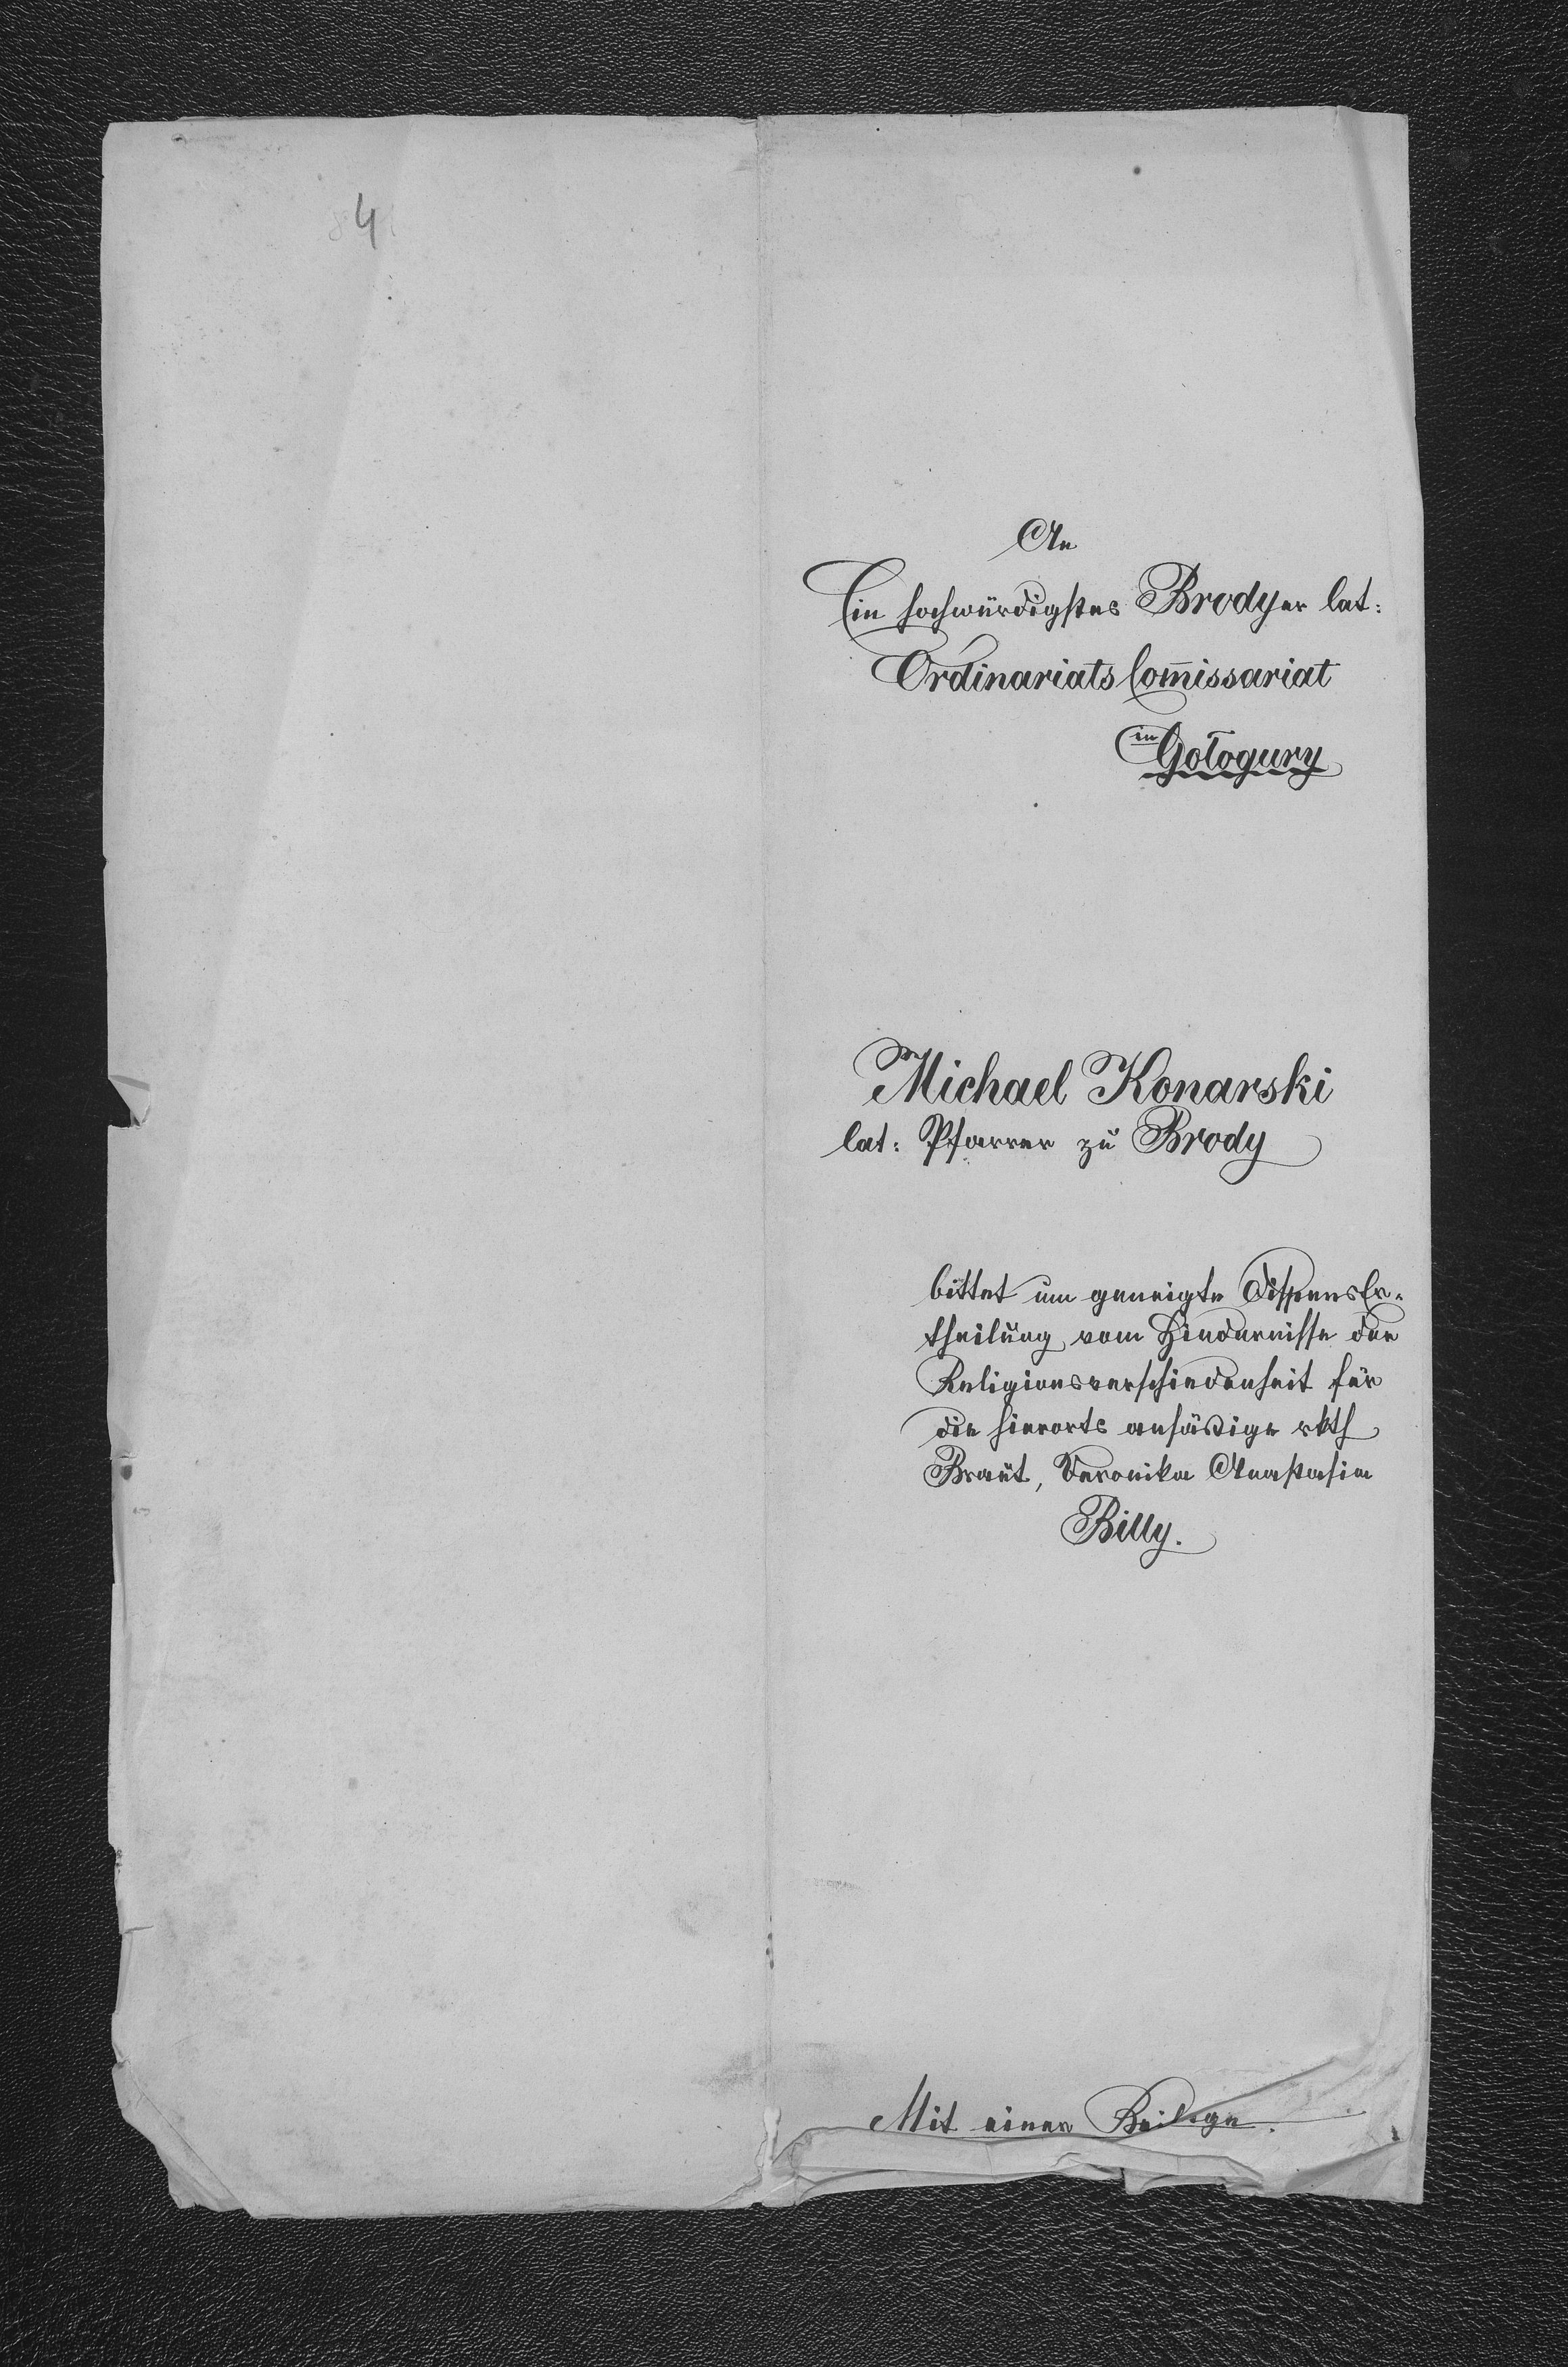 4
An
Ein hochwürdigstes Brodyer lat:
Ordinariats Com̄issariat
in Gołogury
Michael Konarski
lat: Pfarrer zu Brody
bittet um geneigte DispensEr-
theilung vom Hindernisse der
Religionsverschiedenheit für
die hierorts ansäßige rkth
Braut, Veronika Anastasia
Billy.
Mit einer Beilage.